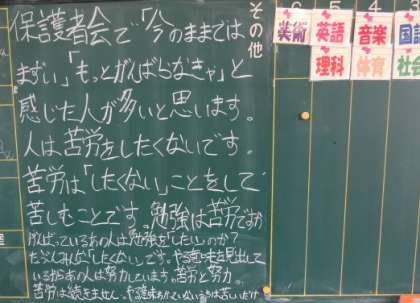 その他
保護者会で「今のままでは
まずい」「もっとがんばらなきゃ」と
感じた人が多いと思います。
人は、苦労をしたくないです。
苦労は「したくない」ことをして
苦しむことです。勉強は苦労ですが
がんばっているあの人は勉強を「したい」のか?
たぶんみんな「したくない」です。やる意味を見出して
いるからあの人は努力しています。苦労と努力。
苦労は続きません。やる意味もっていないうちは苦いだけ
6 5 4 3
美術 英語 音楽 国語
理科 体育 社会